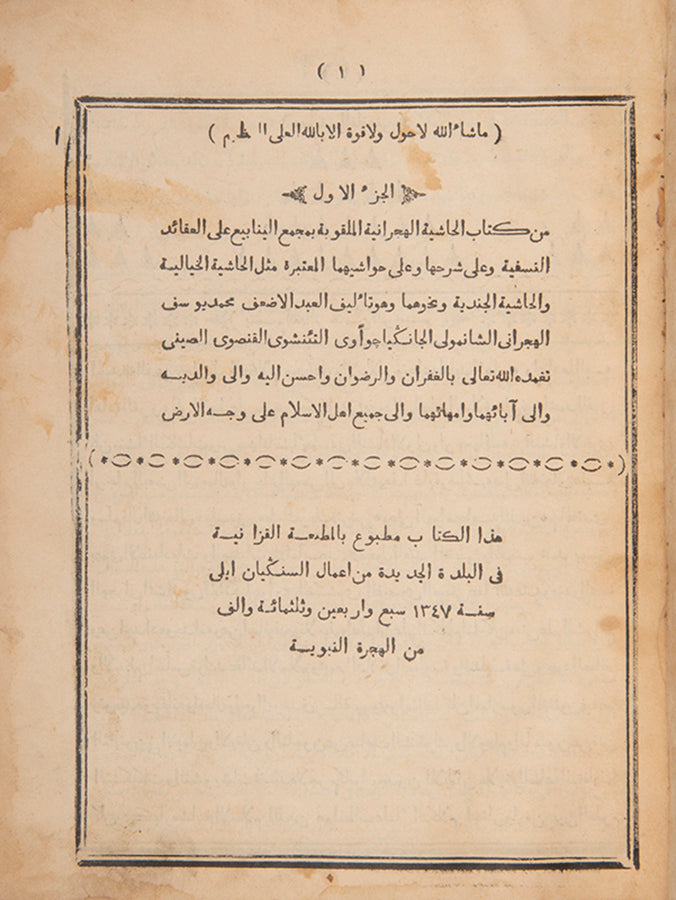 ( ١ )
( ماشاء الله لاحول ولاقوة الابالله العلى العظيم )
الجزء الاول
من كتاب الحاشية الهجرانية الملقوبة بمجمع الينابيع على العقائد
النسفية وعلى شرحها وعلى حواشيهما المعتبرة مثل الحاشية الخيالية
والحاشية الجندية ونحوهما وهوتاءليف العبد الاضعف محمد يوسف
الهجرانى الشانمولى الجانكياچوآوى التئنشوى القنصوى الصينى
تغمده الله تعالى بالغفران والرضوان واحسن اليه والى والديه
والى آبائهما وامهاتهما والى جميع اهل الاسلام على وجه الارض
هذا الكتاب مطبوع بالمطبعة القزانية
فى البلدة الجديدة من اعمال السنكيان ايلى
سنة ١٣٤٧ سبع واربعين وثلثمائة والف
من الهجرة النبوية